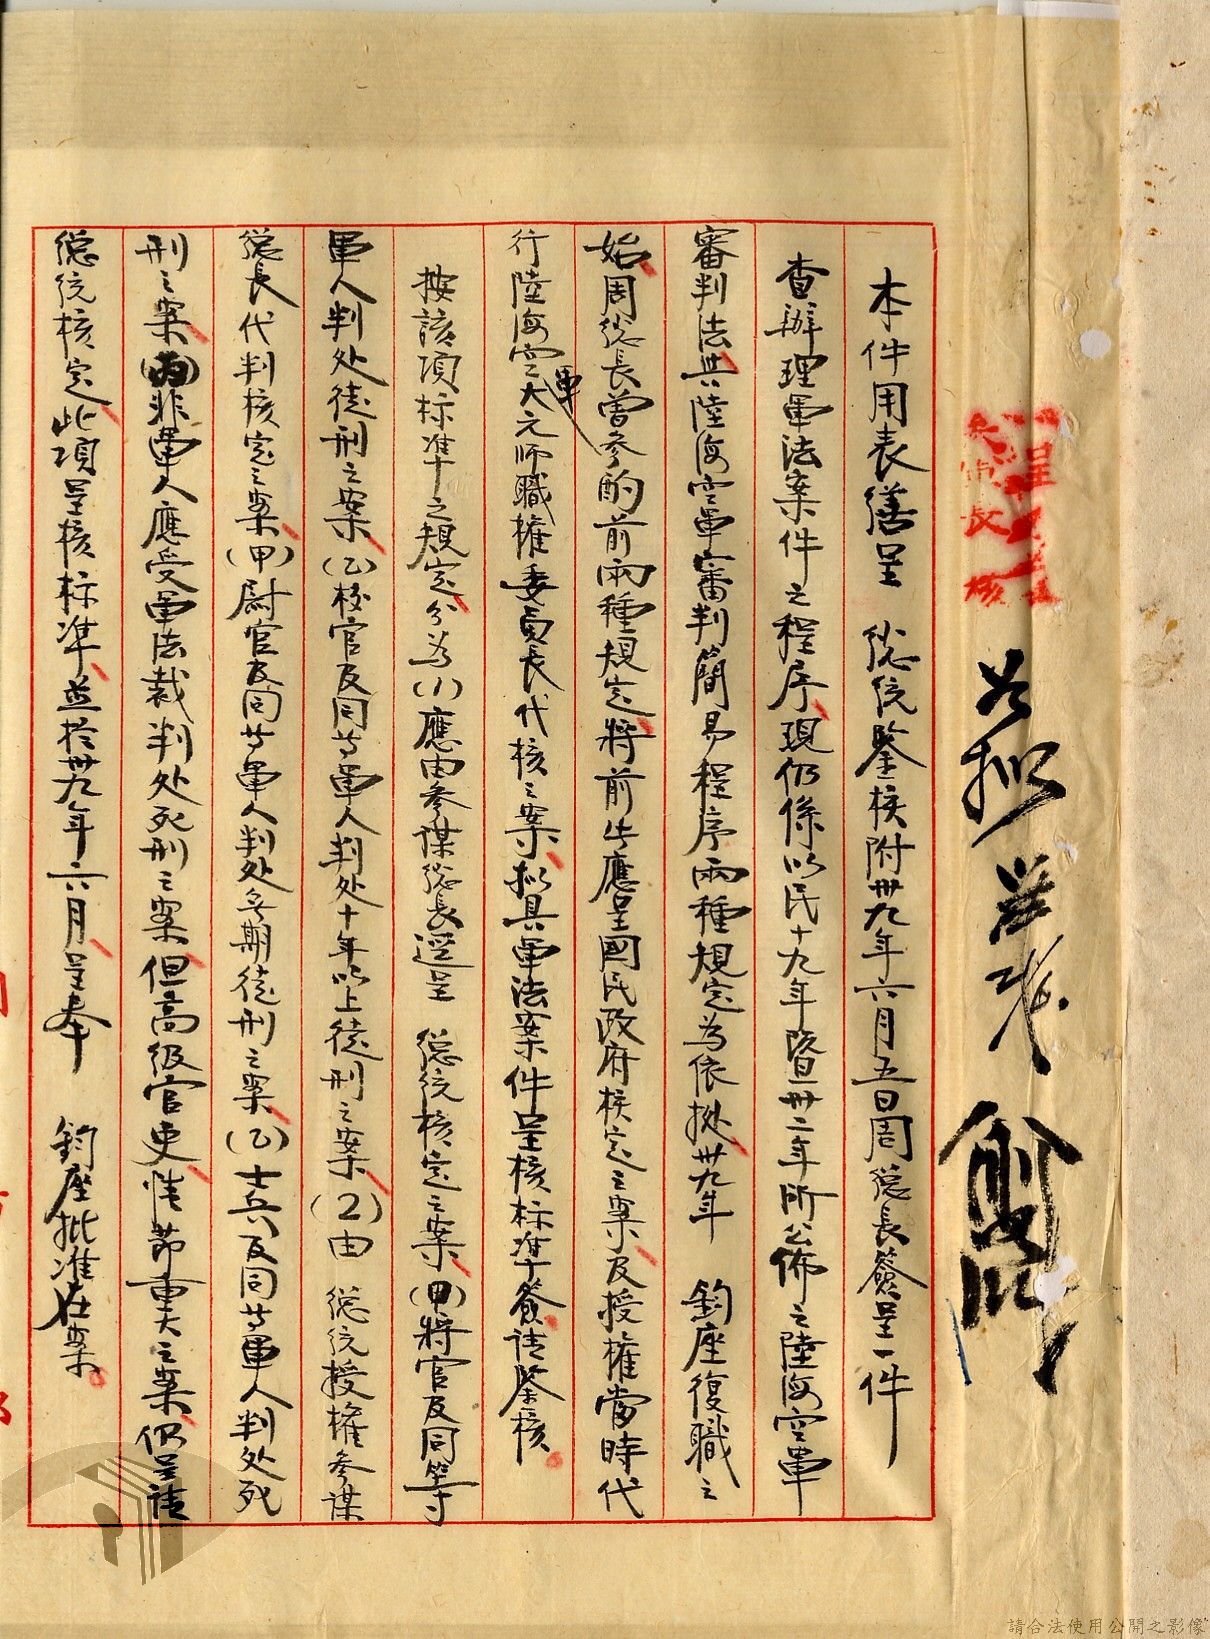 如擬 照辦
本件用表繕呈 總統鑒核附卅九年六月五日周總長簽呈一件
查辦理軍法案件之程序現仍係以民十九年暨卅二年所公佈之陸海空軍
審判法與陸海空軍審判簡易程序兩種規定為依據卅九年 鈞座復職之
始周總長曾參酌前兩種規定將前此應呈國民政府核定之案及授權當時代
行陸海空軍大元帥職權委員長代核之案擬具軍法案件呈核标準簽請鑒核
按該項标準之規定分為(1)應由參謀總長逕呈 總統核定之案(甲)將官及同等
軍人判处徒刑之案(乙)校官及同等軍人判处十年以上徒刑之案(2)由 總統授權參謀
總長代判核定之案(甲)尉官及同等軍人判处無期徒刑之案(乙)士兵及同等軍人判处死
刑之案(丙)非軍人應受軍法裁判处死刑之案但高級官吏性節重大之案仍呈請
總統核定此項呈核标準並於卅九年六月呈奉 鈞座批准在案
請合法使用公開之影像